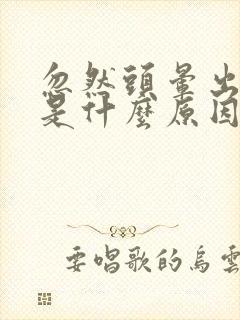 忽然頭暈出
是什麼原因
要唱歌的烏雲